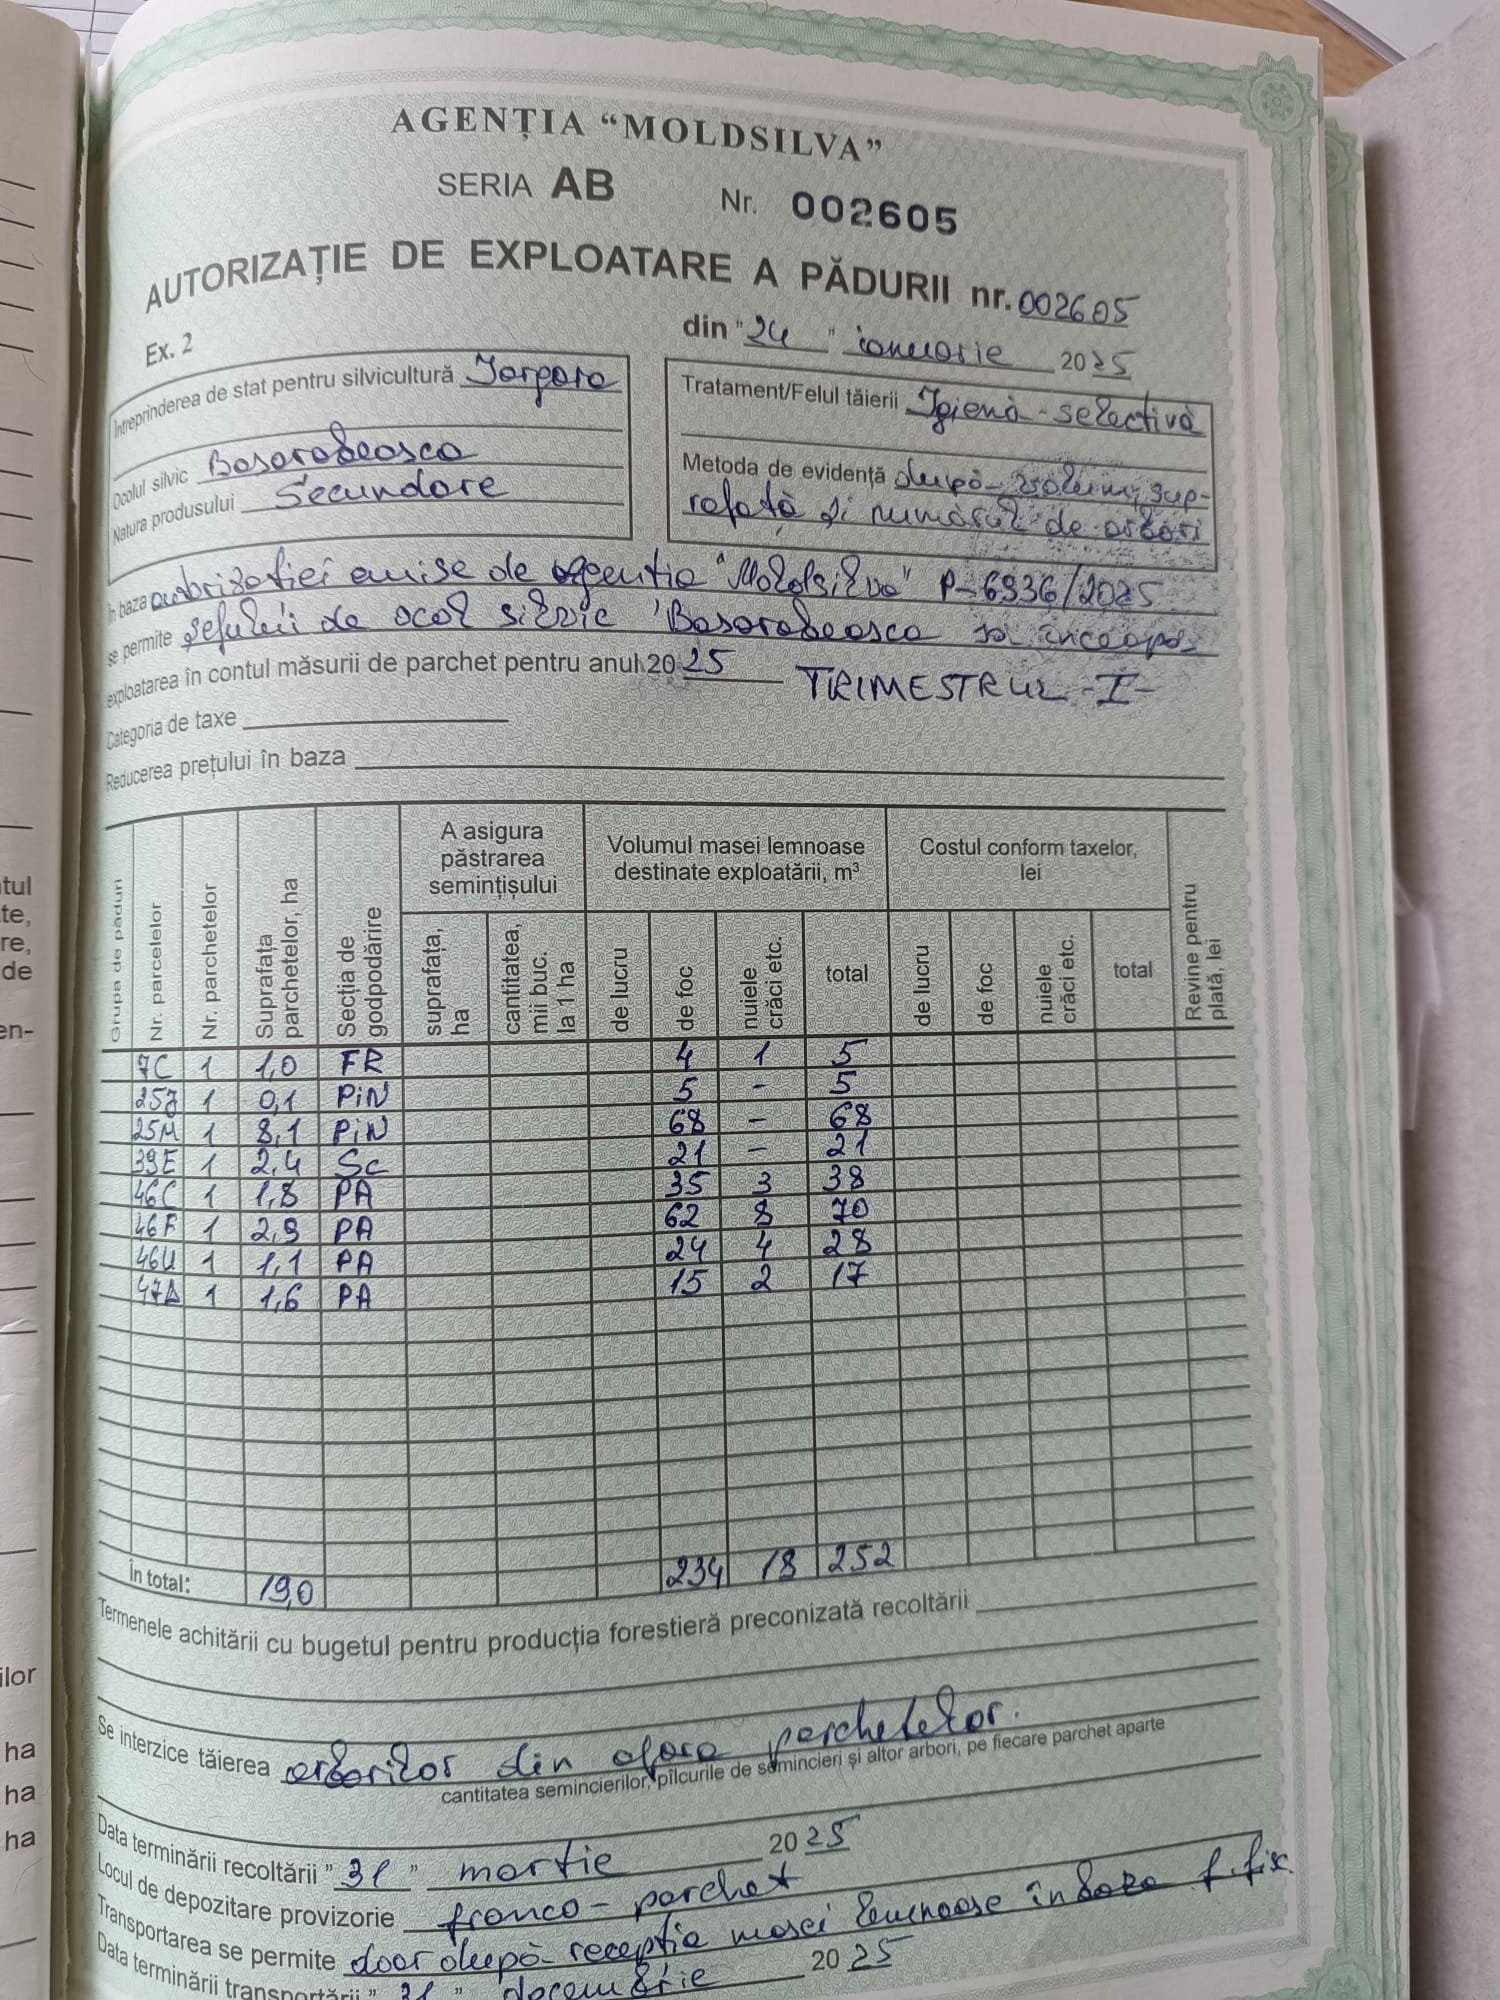 AGENȚIA “MOLDSILVA”
SERIA AB Nr. 002605
AUTORIZAȚIE DE EXPLOATARE A PĂDURII nr. 002605
Ex. 2
din "24" ianuarie 2025
Întreprinderea de stat pentru silvicultură Iargara
Ocolul silvic Basarabeasca
Natura produsului Secundare
Tratament/Felul tăierii Igienă - selectivă
Metoda de evidență după volum, sup-
rafață și numărul de arbori
În baza autorizației emise de agenția "Moldsilva" P-6936/2025
se permite șefului de ocol silvic Basarabeasca să înceapă
exploatarea în contul măsurii de parchet pentru anul 2025 TRIMESTRUL -I-
Categoria de taxe
Reducerea prețului în baza
Grupa de păduri
Nr. parcelelor
Nr. parchetelor
Suprafața parchetelor, ha
Secția de godpodărire
A asigura păstrarea semințișului
suprafața, ha
cantitatea, mii buc. la 1 ha
Volumul masei lemnoase destinate exploatării, m³
de lucru
de foc
nuiele crăci etc.
total
Costul conform taxelor, lei
de lucru
de foc
nuiele crăci etc.
total
Revine pentru plată, lei
7C 1 1,0 FR 4 1 5
25J 1 0,1 PiN 5 - 5
25M 1 8,1 PiN 68 - 68
39E 1 2,4 Sc 21 - 21
46C 1 1,8 PA 35 3 38
46F 1 2,9 PA 62 8 70
46U 1 1,1 PA 24 4 28
47A 1 1,6 PA 15 2 17
În total: 19,0 234 18 252
Termenele achitării cu bugetul pentru producția forestieră preconizată recoltării
Se interzice tăierea arborilor din afara parchetelor.
cantitatea semincierilor, pîlcurile de semincieri și altor arbori, pe fiecare parchet aparte
Data terminării recoltării "31" martie 2025
Locul de depozitare provizorie franco - parchet
Transportarea se permite doar după recepția masei lemnoase în baza f. fix.
Data terminării transportării "31" decembrie 2025
tul
te,
re,
de
en-
ilor
ha
ha
ha